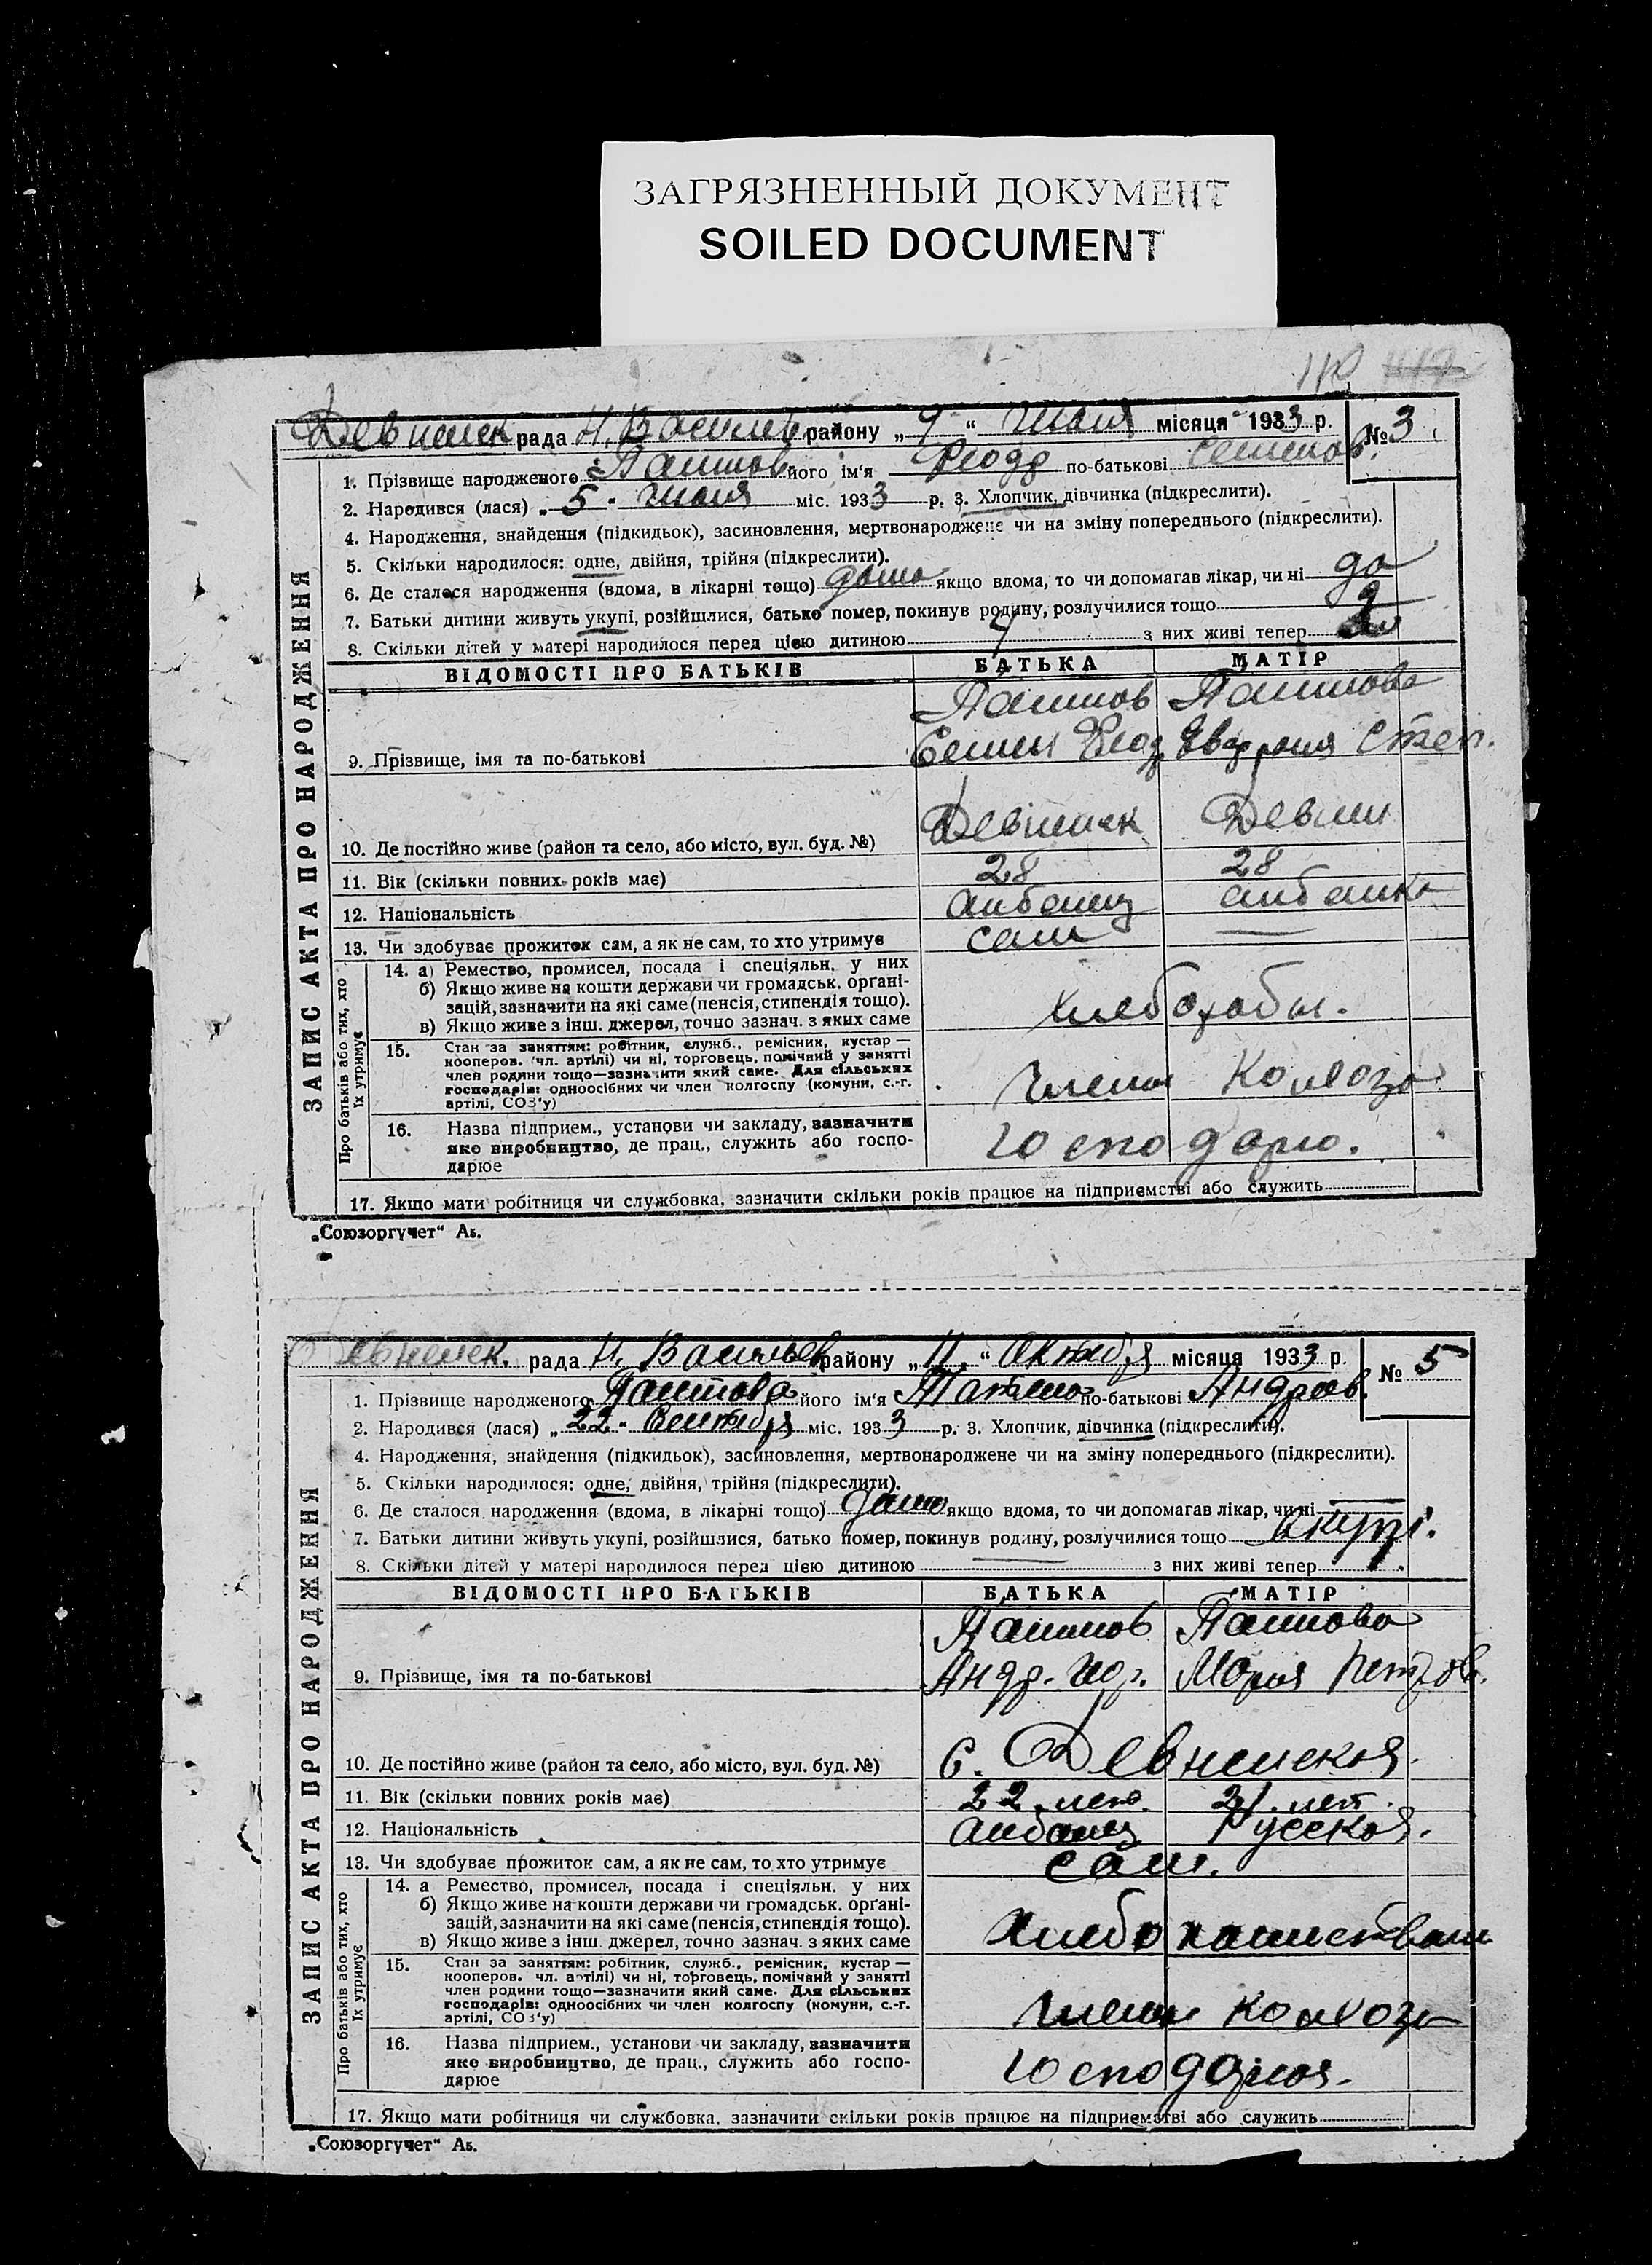 ЗАГРЯЗНЕННЫЙ ДОКУМЕНТ
SOILED DOCUMENT
Девненск рада Н. Васильев району „9“ Июля місяця 1933 р. №3
ЗАПИС АКТА ПРО НАРОДЖЕННЯ
1. Прізвище народженого його ім‘я по-батькові
2. Народився (лася) „5“ Июля міс. 1933 р. 3. Хлопчик, дівчинка (підкреслити).
4. Народження, знайдення (підкидьок), засиновлення, мертвонароджене чи на зміну попереднього (підкреслити).
5. Скільки народилося: одне, двійня, трійня (підкреслити).
6. Де сталося народження (вдома, в лікарні тощо) дома якщо вдома, то чи допомагав лікар, чи ні да
7. Батьки дитини живуть укупі, розійшлися, батько помер, покинув родину, розлучилися тощо
8. Скільки дітей у матері народилося перед цією дитиною 4 з них живі тепер
ВІДОМОСТІ ПРО БАТЬКІВ БАТЬКА МАТІР
9. Прізвище, імя та по-батькові Степ.
10. Де постійно живе (район та село, або місто, вул. буд. №)
11. Вік (скільки повних років має) 28 28
12. Національність албанец албанка
13. Чи здобуває прожиток сам, а як не сам, то хто утримує сам —
Про батьків або тих, хто їх утримує
14. а) Ремество, промисел, посада і спеціяльн. у них
б) Якщо живе на кошти держави чи громадськ. органі-
зацій, зазначити на які саме (пенсія, стипендія тощо).
в) Якщо живе з інш. джерел, точно зазнач. з яких саме
15. Стан за заняттям: робітник, служб., ремісник, кустар —
кооперов. (чл. артілі) чи ні, торговець, помічний у занятті
член родини тощо—зазначити який саме. Для сільських
господарів: одноосібних чи член колгоспу (комуни, с.-г.
артілі, СОЗ‘у)
члены колхоза
16. Назва підприєм., установи чи закладу, зазначити
яке виробництво, де прац., служить або госпо-
дарюе
17. Якщо мати робітниця чи службовка, зазначити скільки років працює на підприємстві або служить
„Союзоргучет“ Аб.
рада Н. Васильев району „11“ Октября місяця 1933 р. № 5
ЗАПИС АКТА ПРО НАРОДЖЕННЯ
1. Прізвище народженого його ім‘я по-батькові Андреев.
2. Народився (лася) „22“ Сентября міс. 1933 р. 3. Хлопчик, дівчинка (підкреслити).
4. Народження, знайдення (підкидьок), засиновлення, мертвонароджене чи на зміну попереднього (підкреслити).
5. Скільки народилося: одне, двійня, трійня (підкреслити).
6. Де сталося народження (вдома, в лікарні тощо) дома якщо вдома, то чи допомагав лікар, чи ні —
7. Батьки дитини живуть укупі, розійшлися, батько помер, покинув родину, розлучилися тощо укупі.
8. Скільки дітей у матері народилося перед цією дитиною — з них живі тепер
ВІДОМОСТІ ПРО БАТЬКІВ БАТЬКА МАТІР
9. Прізвище, імя та по-батькові Мария Петров.
10. Де постійно живе (район та село, або місто, вул. буд. №) С. Девненская.
11. Вік (скільки повних років має) 22 лет. 21 лет.
12. Національність албанец русская.
13. Чи здобуває прожиток сам, а як не сам, то хто утримує сам.
Про батьків або тих, хто їх утримує
14. а Ремество, промисел, посада і спеціяльн. у них
б) Якщо живе на кошти держави чи громадськ. органі-
зацій, зазначити на які саме (пенсія, стипендія тощо).
в) Якщо живе з інш. джерел, точно зазнач. з яких саме
15. Стан за заняттям: робітник, служб., ремісник, кустар —
кооперов. чл. артілі) чи ні, торговець, помічний у занятті
член родини тощо—зазначити який саме. Для сільських
господарів: одноосібних чи член колгоспу (комуни, с.-г.
артілі, СОЗ‘у)
члены колхоза
16. Назва підприєм., установи чи закладу, зазначити
яке виробництво, де прац., служить або госпо-
дарюе
17. Якщо мати робітниця чи службовка, зазначити скільки років працює на підприємстві або служить
„Союзоргучет“ Аб.